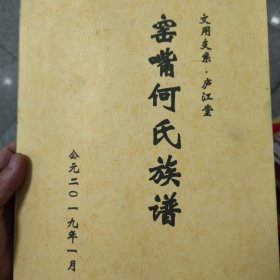 文用支系·庐江堂
窑嘴何氏族谱
公元二〇一九年一月